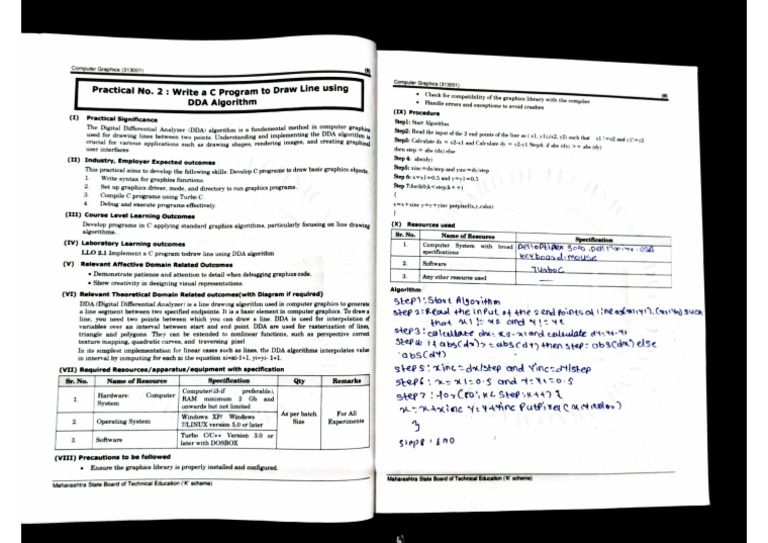 Computer Graphics (313001)
Practical No. 2 : Write a C Program to Draw Line using
DDA Algorithm
(I) Practical Significance
The Digital Differential Analyzer (DDA) algorithm is a fundamental method in computer graphics
used for drawing lines between two points. Understanding and implementing the DDA algorithm is
crucial for various applications such as drawing shapes, rendering images, and creating graphical
user interfaces
(II) Industry, Employer Expected outcomes
This practical aims to develop the following skills: Develop C programs to draw basic graphics objects.
1. Write syntax for graphics functions.
2. Set up graphics driver, mode, and directory to run graphics programs.
3. Compile C programs using Turbo C
4. Debug and execute programs effectively.
(III) Course Level Learning Outcomes
Develop programs in C applying standard graphics algorithms, particularly focusing on line drawing
algorithms.
(IV) Laboratory Learning outcomes
LLO 2.1 Implement a C program todraw line using DDA algorithm
(V) Relevant Affective Domain Related Outcomes
• Demonstrate patience and attention to detail when debugging graphics code.
• Show creativity in designing visual representations.
(VI) Relevant Theoretical Domain Related outcomes(with Diagram if required)
DDA (Digital Differential Analyzer) is a line drawing algorithm used in computer graphics to generate
a line segment between two specified endpoints. It is a basic element in computer graphics. To draw a
line, you need two points between which you can draw a line. DDA is used for interpolation of
variables over an interval between start and end point. DDA are used for rasterization of lines,
triangle and polygons. They can be extended to nonlinear functions, such as perspective correct
texture mapping, quadratic curves, and traversing pixel
In its simplest implementation for linear cases such as lines, the DDA algorithms interpolates value
in interval by computing for each xi the equation xi=xi-1+1, yi=yi-1+1.
(VII) Required Resources/apparatus/equipment with specification
Sr. No. Name of Resource Specification Qty Remarks
1. Hardware: Computer System Computer(i3-if preferable), RAM minimum 2 Gb and onwards but not limited As per batch Size For All Experiments
2. Operating System Windows XP/ Windows 7/LINUX version 5.0 or later
3. Software Turbo C/C++ Version 3.0 or later with DOSBOX
(VIII) Precautions to be followed
• Ensure the graphics library is properly installed and configured.
Maharashtra State Board of Technical Education ('K' scheme)
Computer Graphics (313001)
• Check for compatibility of the graphics library with the compiler.
• Handle errors and exceptions to avoid crashes.
(IX) Procedure
Step1: Start Algorithm
Step2: Read the input of the 2 end points of the line as ( x1, y1),(x2, y2) such that x1 !=x2 and y1!=y2
Step3: Calculate dx = x2-x1 and Calculate dy = y2-y1 Step4: if abs (dx) >= abs (dy)
then step = abs (dx) else
Step 4: abs(dy)
Step5: xinc=dx/step and yinc=dy/step
Step 6: x=x1=0.5 and y=y1=0.5
Step 7:
{
x=x+xinc y=y+yinc putpixel(x,y,color)
}
(X) Resources used
Sr. No. Name of Resource Specification
1. Computer System with broad specifications keyboard-mouse
2. Software TurboC
3. Any other resource used —
Algorithm
step1: Start Algorithm
step 2: Read the input of the 2 end points of line as(x1,y1),(x2,y2) such
that x1 != x2 and y1 != y2
step3: calculate dx= x2-x1 and calculate dy=y2-y1
step4: if abs(dx)>= abs(dy) then step= abs(dx) else
abs(dy)
step 5: xinc=dx/step and yinc=dy/step
step6: x=x1=0.5 and y=y1=0.5
step 7: for(k=0; k< step; k++) {
x=x+xinc y=y+yinc putpixel(x,y,color)
}
step8: End
Maharashtra State Board of Technical Education ('K' scheme)